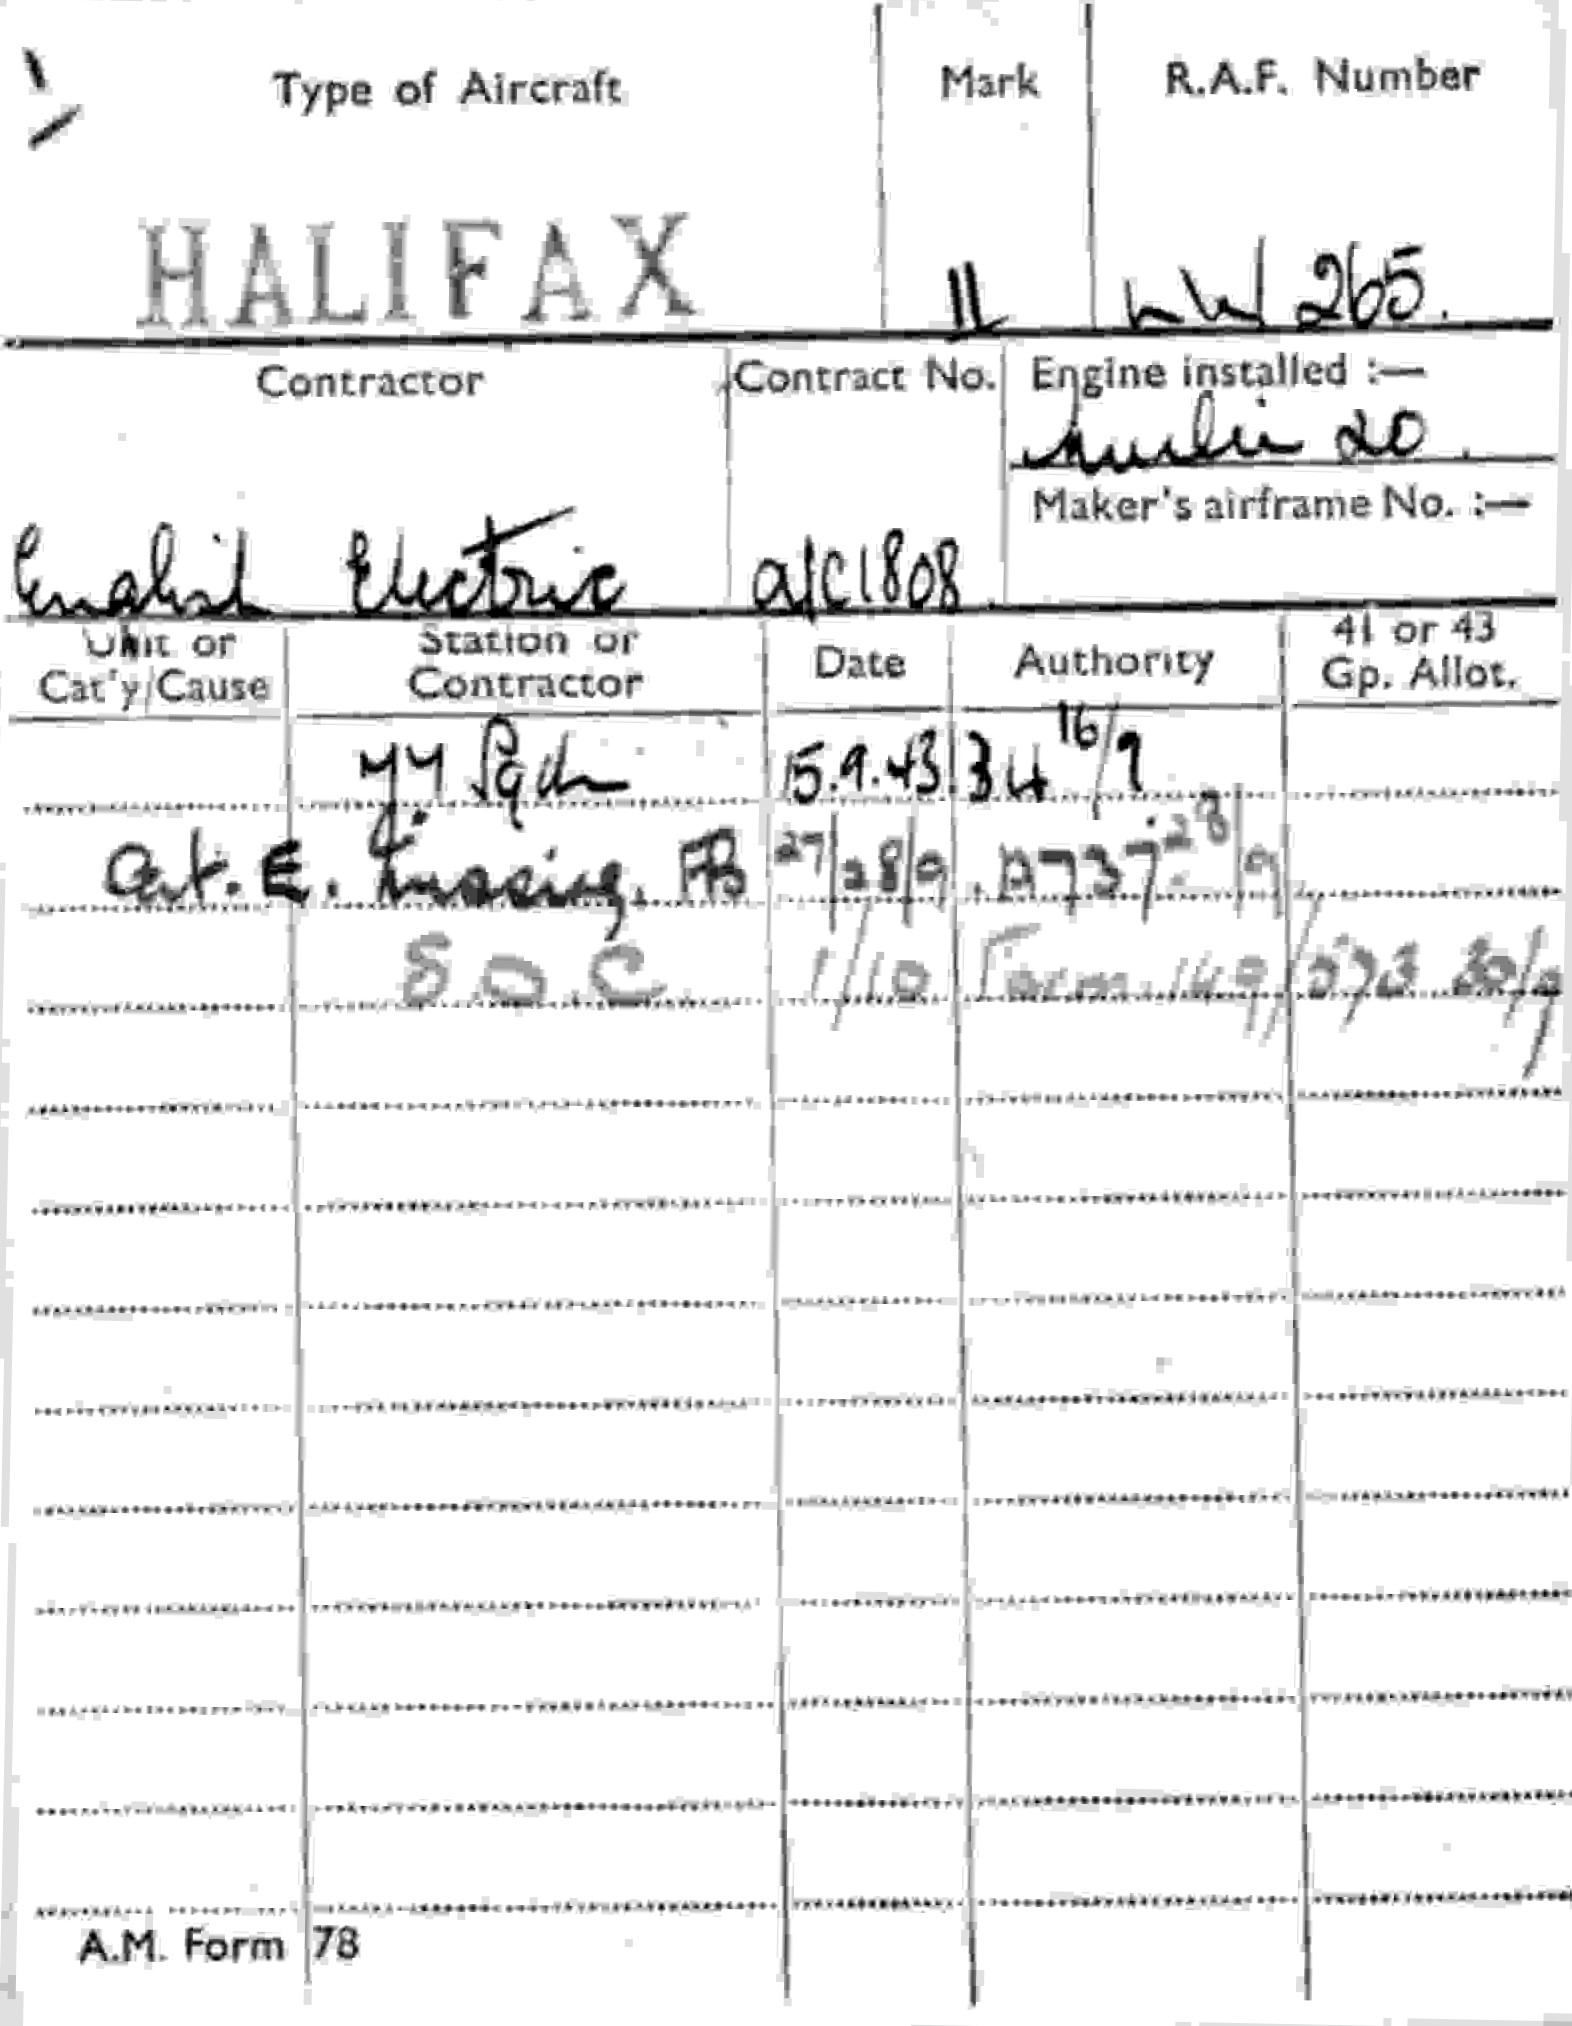 Type of Aircraft Mark R.A.F. Number
HALIFAX II LW 265.
Contractor Contract No. Engine installed :—
Merlin 20.
Maker's airframe No. :—
English Electric a/c1808
Unit or Cat'y/Cause Station or Contractor Date Authority 41 or 43 Gp. Allot.
77 Sqdn 15.9.43 34 16/9
Cat. E. Missing. FB 27/28/9 A737 28/9
S.O.C 1/10 Form 149/573 30/9
A.M. Form 78